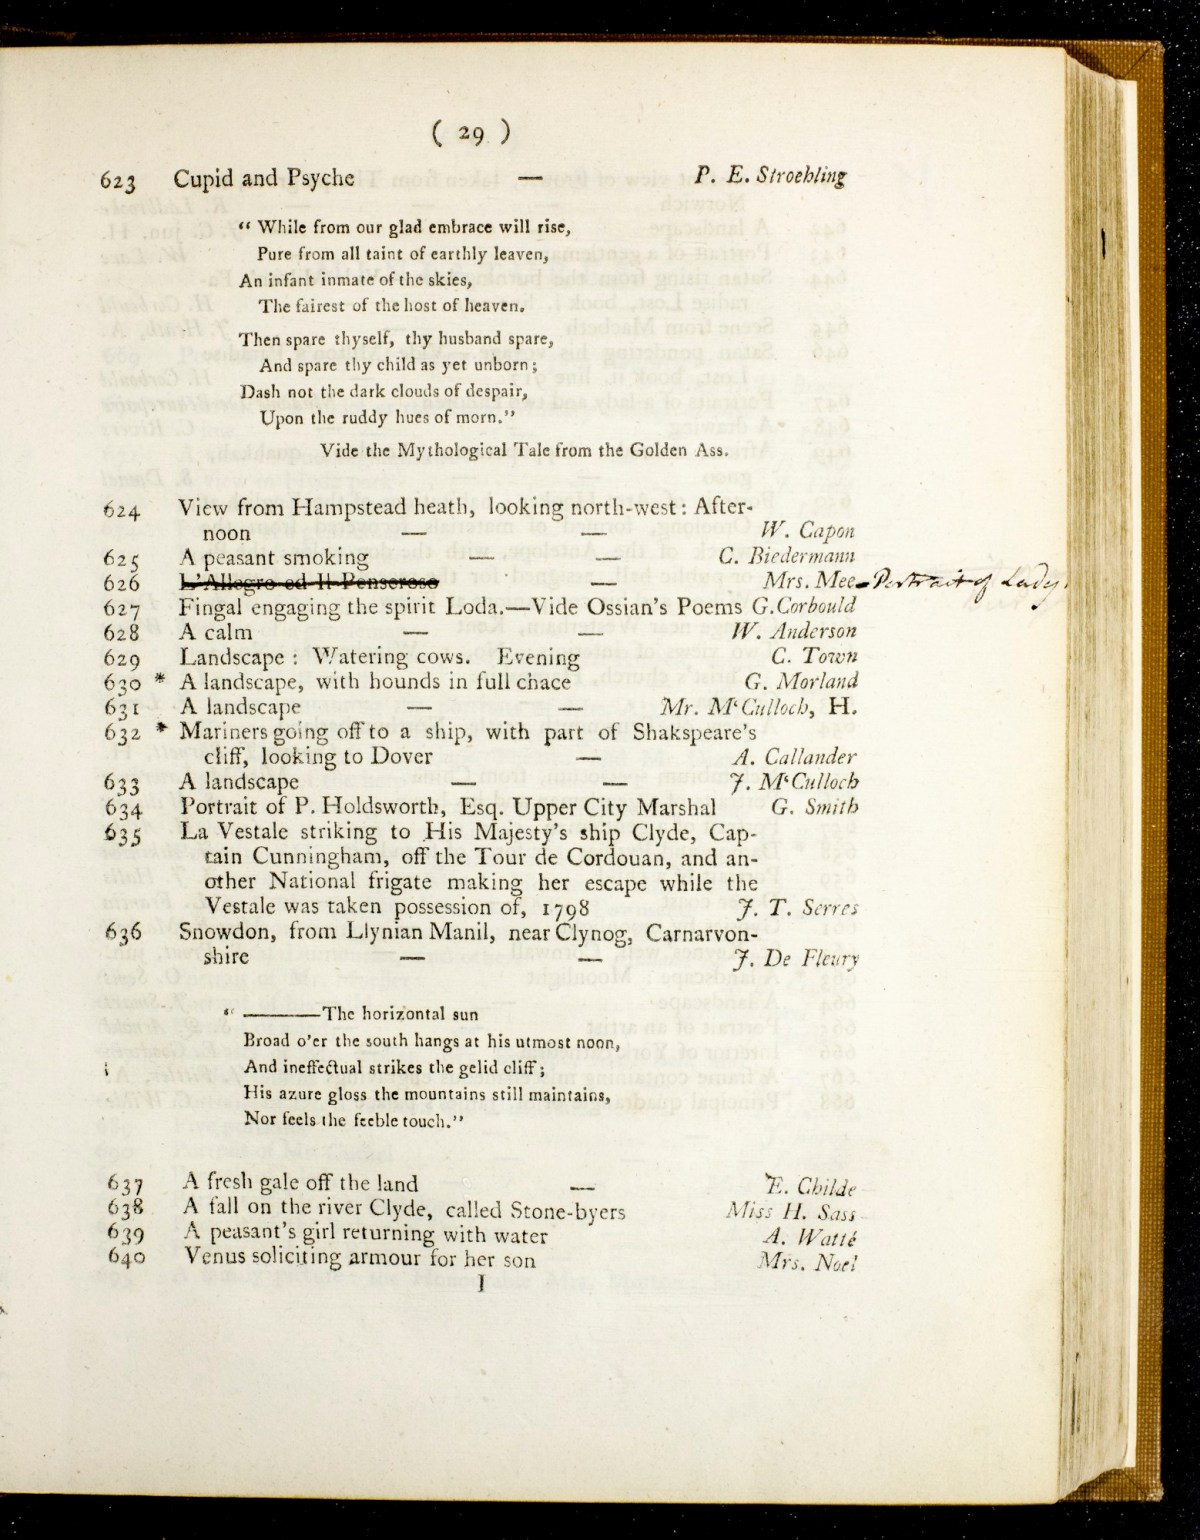 ( 29 )
623 Cupid and Psyche — P. E. Stroehling
“ While from our glad embrace will rise,
Pure from all taint of earthly leaven,
An infant inmate of the skies,
The fairest of the host of heaven.
Then spare thyself, thy husband spare,
And spare thy child as yet unborn ;
Dash not the dark clouds of despair,
Upon the ruddy hues of morn.”
Vide the Mythological Tale from the Golden Ass.
624 View from Hampstead heath, looking north-west : After-
noon — — W. Capon
625 A peasant smoking — — C. Biedermann
626 L’Allegro ed Il Penseroso — Mrs. Mee - Portrait of Lady.
627 Fingal engaging the spirit Loda.—Vide Ossian’s Poems G. Corbould
628 A calm — — W. Anderson
629 Landscape : Watering cows. Evening C. Town
630 * A landscape, with hounds in full chace G. Morland
631 A landscape — — Mr. M‘Culloch, H.
632 * Mariners going off to a ship, with part of Shakspeare’s
cliff, looking to Dover — A. Callander
633 A landscape — — J. M‘Culloch
634 Portrait of P. Holdsworth, Esq. Upper City Marshal G. Smith
635 La Vestale striking to His Majesty’s ship Clyde, Cap-
tain Cunningham, off the Tour de Cordouan, and an-
other National frigate making her escape while the
Vestale was taken possession of, 1798 J. T. Serres
636 Snowdon, from Llynian Manil, near Clynog, Carnarvon-
shire — — J. De Fleury
“ ———The horizontal sun
Broad o’er the south hangs at his utmost noon,
And ineffectual strikes the gelid cliff ;
His azure gloss the mountains still maintains,
Nor feels the feeble touch.”
637 A fresh gale off the land — E. Childe
638 A fall on the river Clyde, called Stone-byers Miss H. Sass
639 A peasant’s girl returning with water A. Watté
640 Venus soliciting armour for her son Mrs. Noel
I